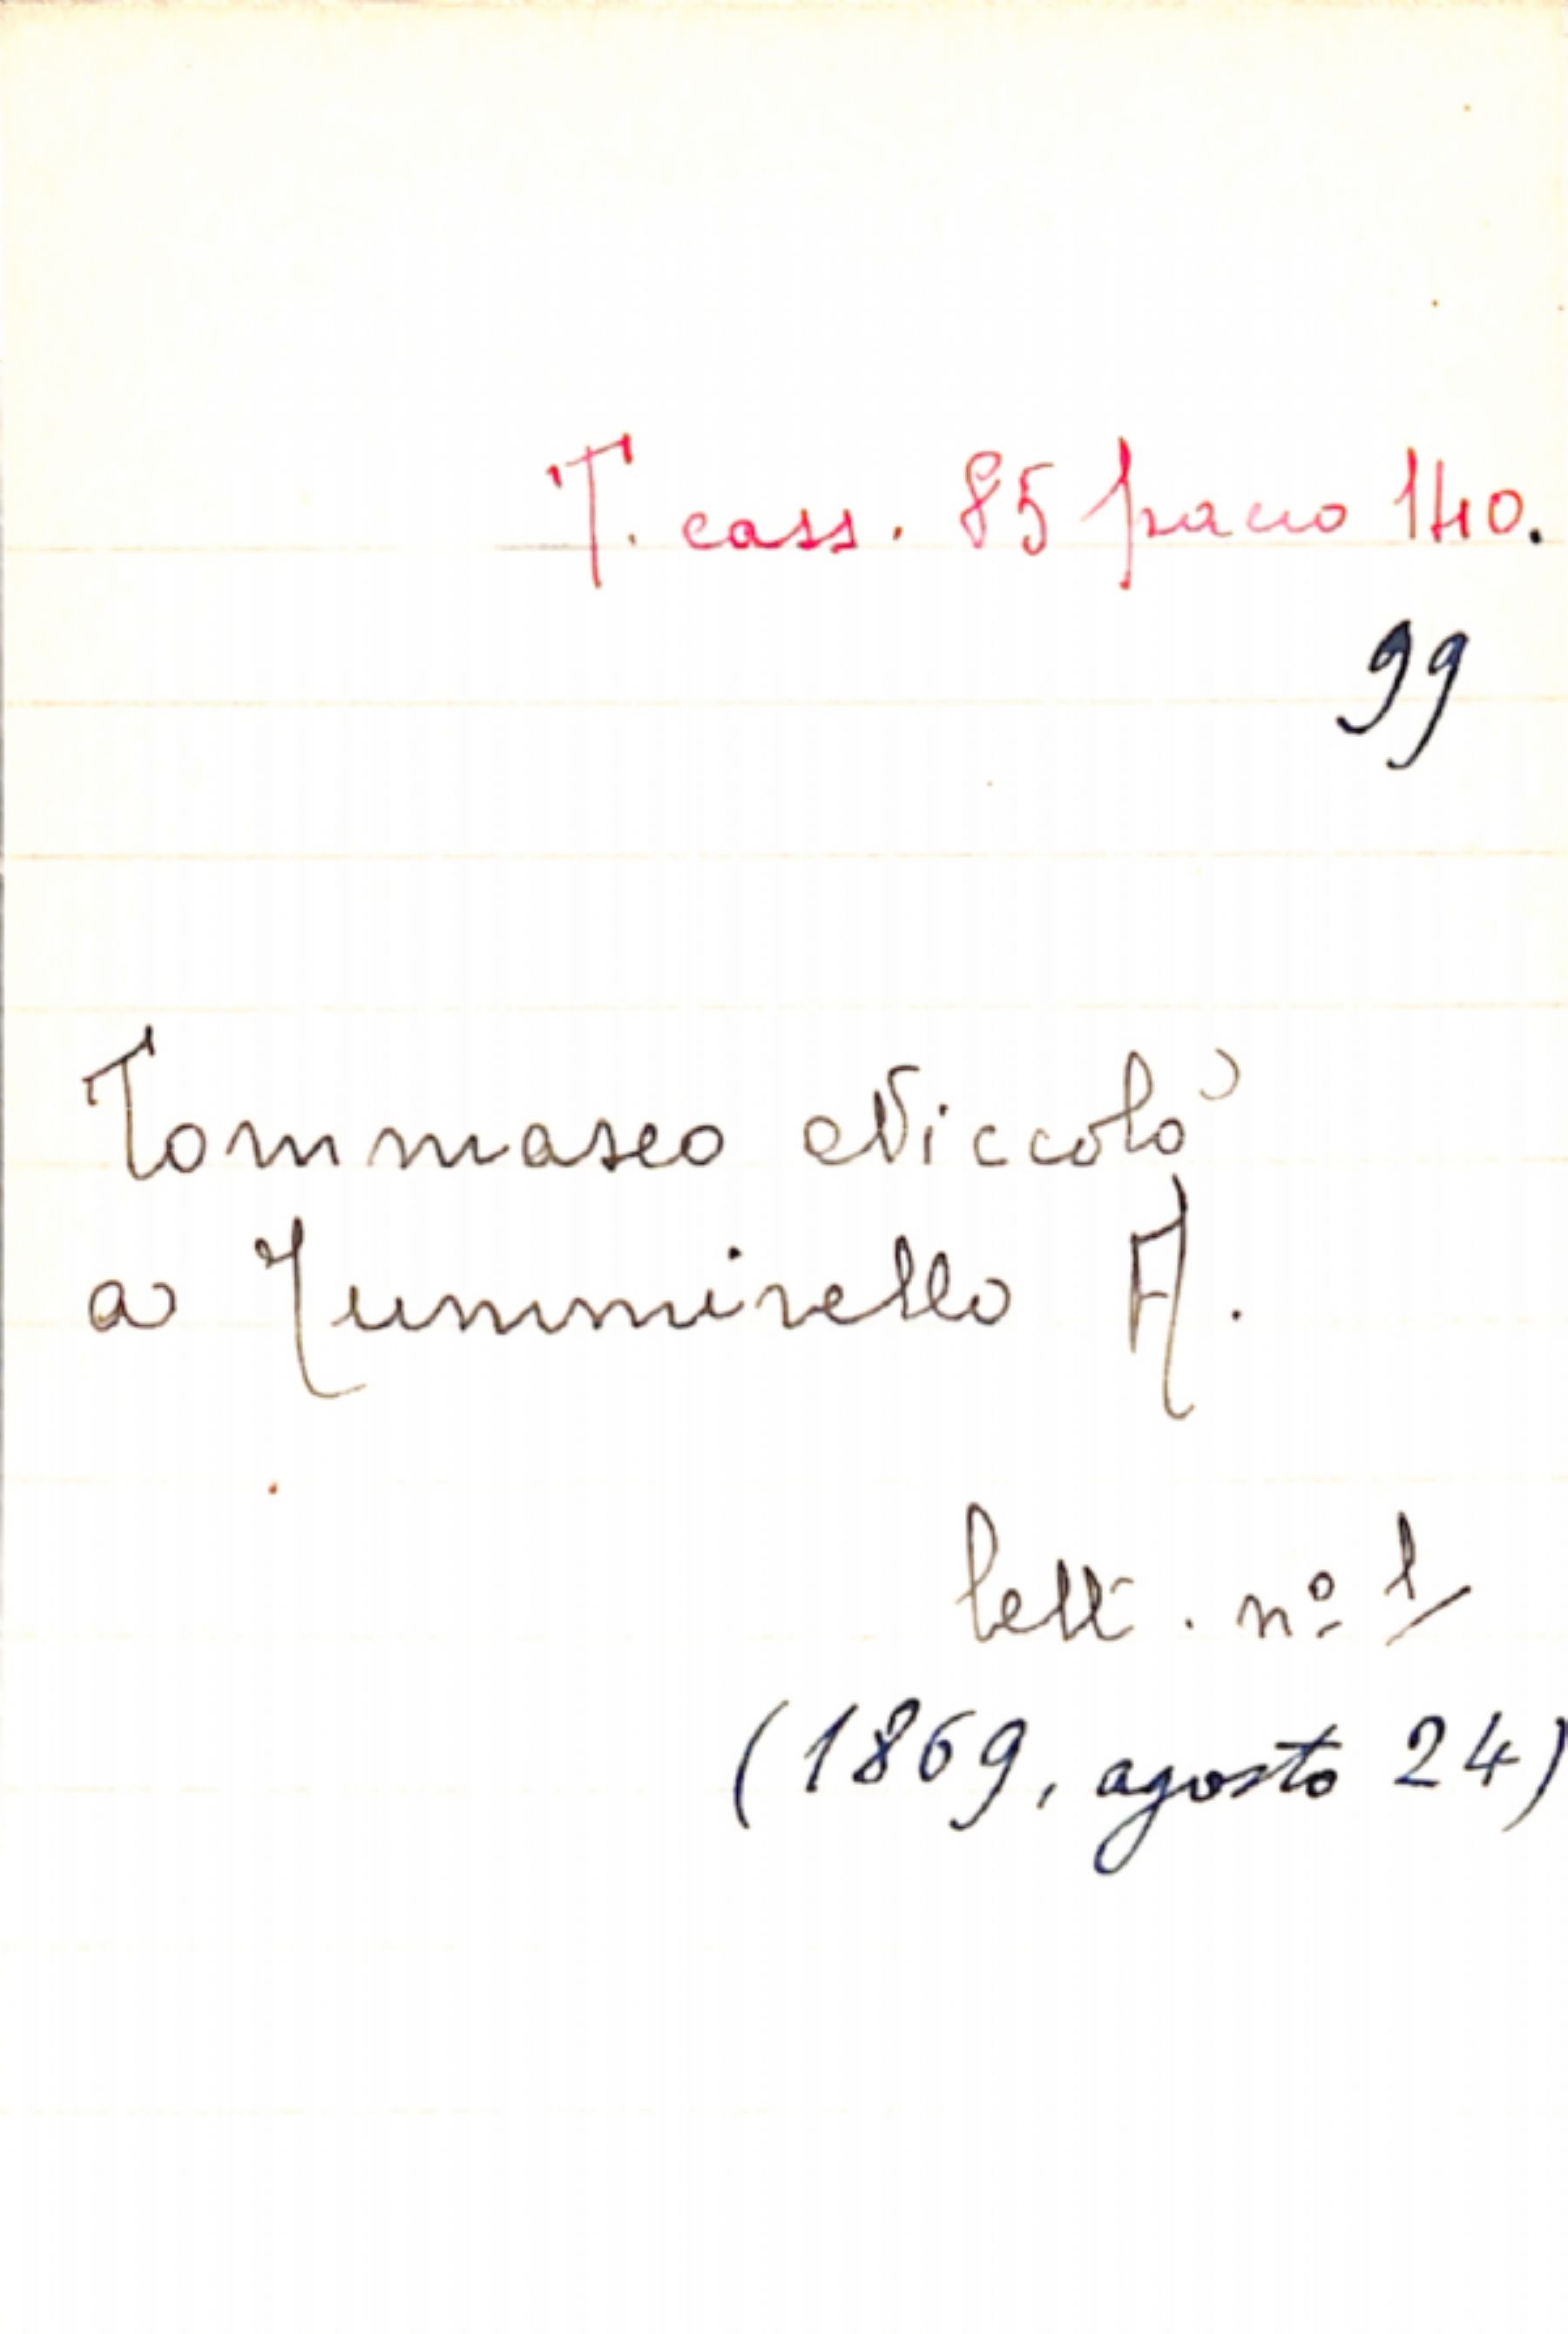 T. cass. 85 pacco 140.
99
Tommaseo Niccolò
a Tumminello A.
lett. nº 1
(1869, agosto 24)